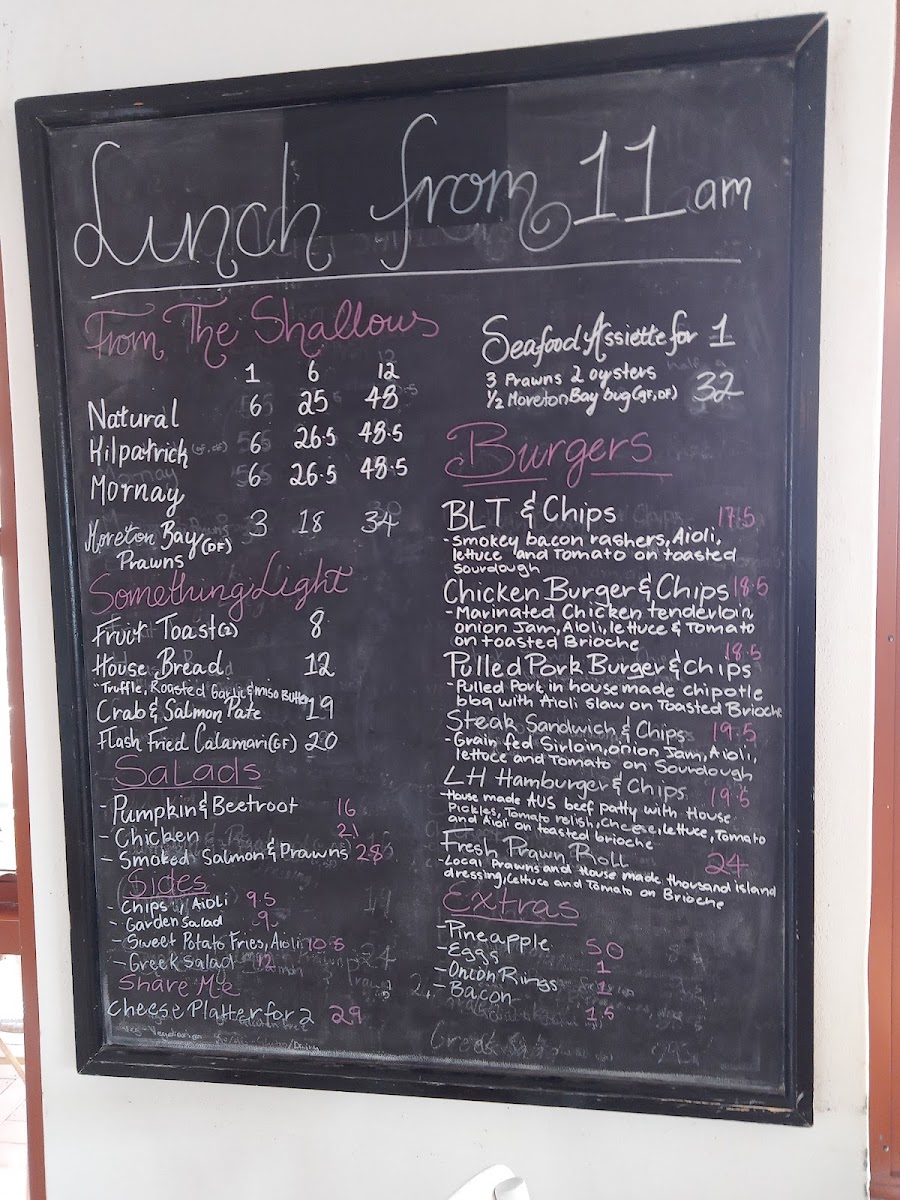 Lunch from 11 am
From The Shallows
1 6 12
Natural 6 25 48
Kilpatrick (GF, DF) 6 26.5 48.5
Mornay 6 26.5 48.5
Moreton Bay (DF) 3 18 34
Prawns
Something Light
Fruit Toast (2) 8
House Bread 12
"Truffle, Roasted Garlic & Miso Butter
Crab & Salmon Pate 19
Flash Fried Calamari (GF) 20
Salads
- Pumpkin & Beetroot 16
- Chicken 21
- Smoked Salmon & Prawns 28
Sides
- Chips / Aioli 9.5
- Garden Salad 9
- Sweet Potato Fries, Aioli 10.5
- Greek Salad 12
Share Me
Cheese Platter for 2 29
Seafood Assiette for 1
3 Prawns 2 oysters
1/2 Moreton Bay bug (GF, DF) 32
Burgers
BLT & Chips 17.5
- Smokey bacon rashers, Aioli,
lettuce and Tomato on toasted
Sourdough
Chicken Burger & Chips 18.5
- Marinated Chicken tenderloin,
onion Jam, Aioli, lettuce & Tomato
on toasted Brioche
Pulled Pork Burger & chips 18.5
- Pulled Pork in house made chipotle
bbq with Aioli slaw on Toasted Brioche
Steak Sandwich & Chips 19.5
- Grain fed Sirloin, onion Jam, Aioli,
lettuce and Tomato on Sourdough
LH Hamburger & Chips 19.5
- House made AUS beef patty with House
Pickles, Tomato relish, Cheese, lettuce, Tomato
and Aioli on toasted brioche
Fresh Prawn Roll 24
- Local Prawns and House made thousand island
dressing, Lettuce and Tomato on Brioche
Extras
- Pineapple 50
- Eggs 1
- Onion Rings 1
- Bacon 1.5